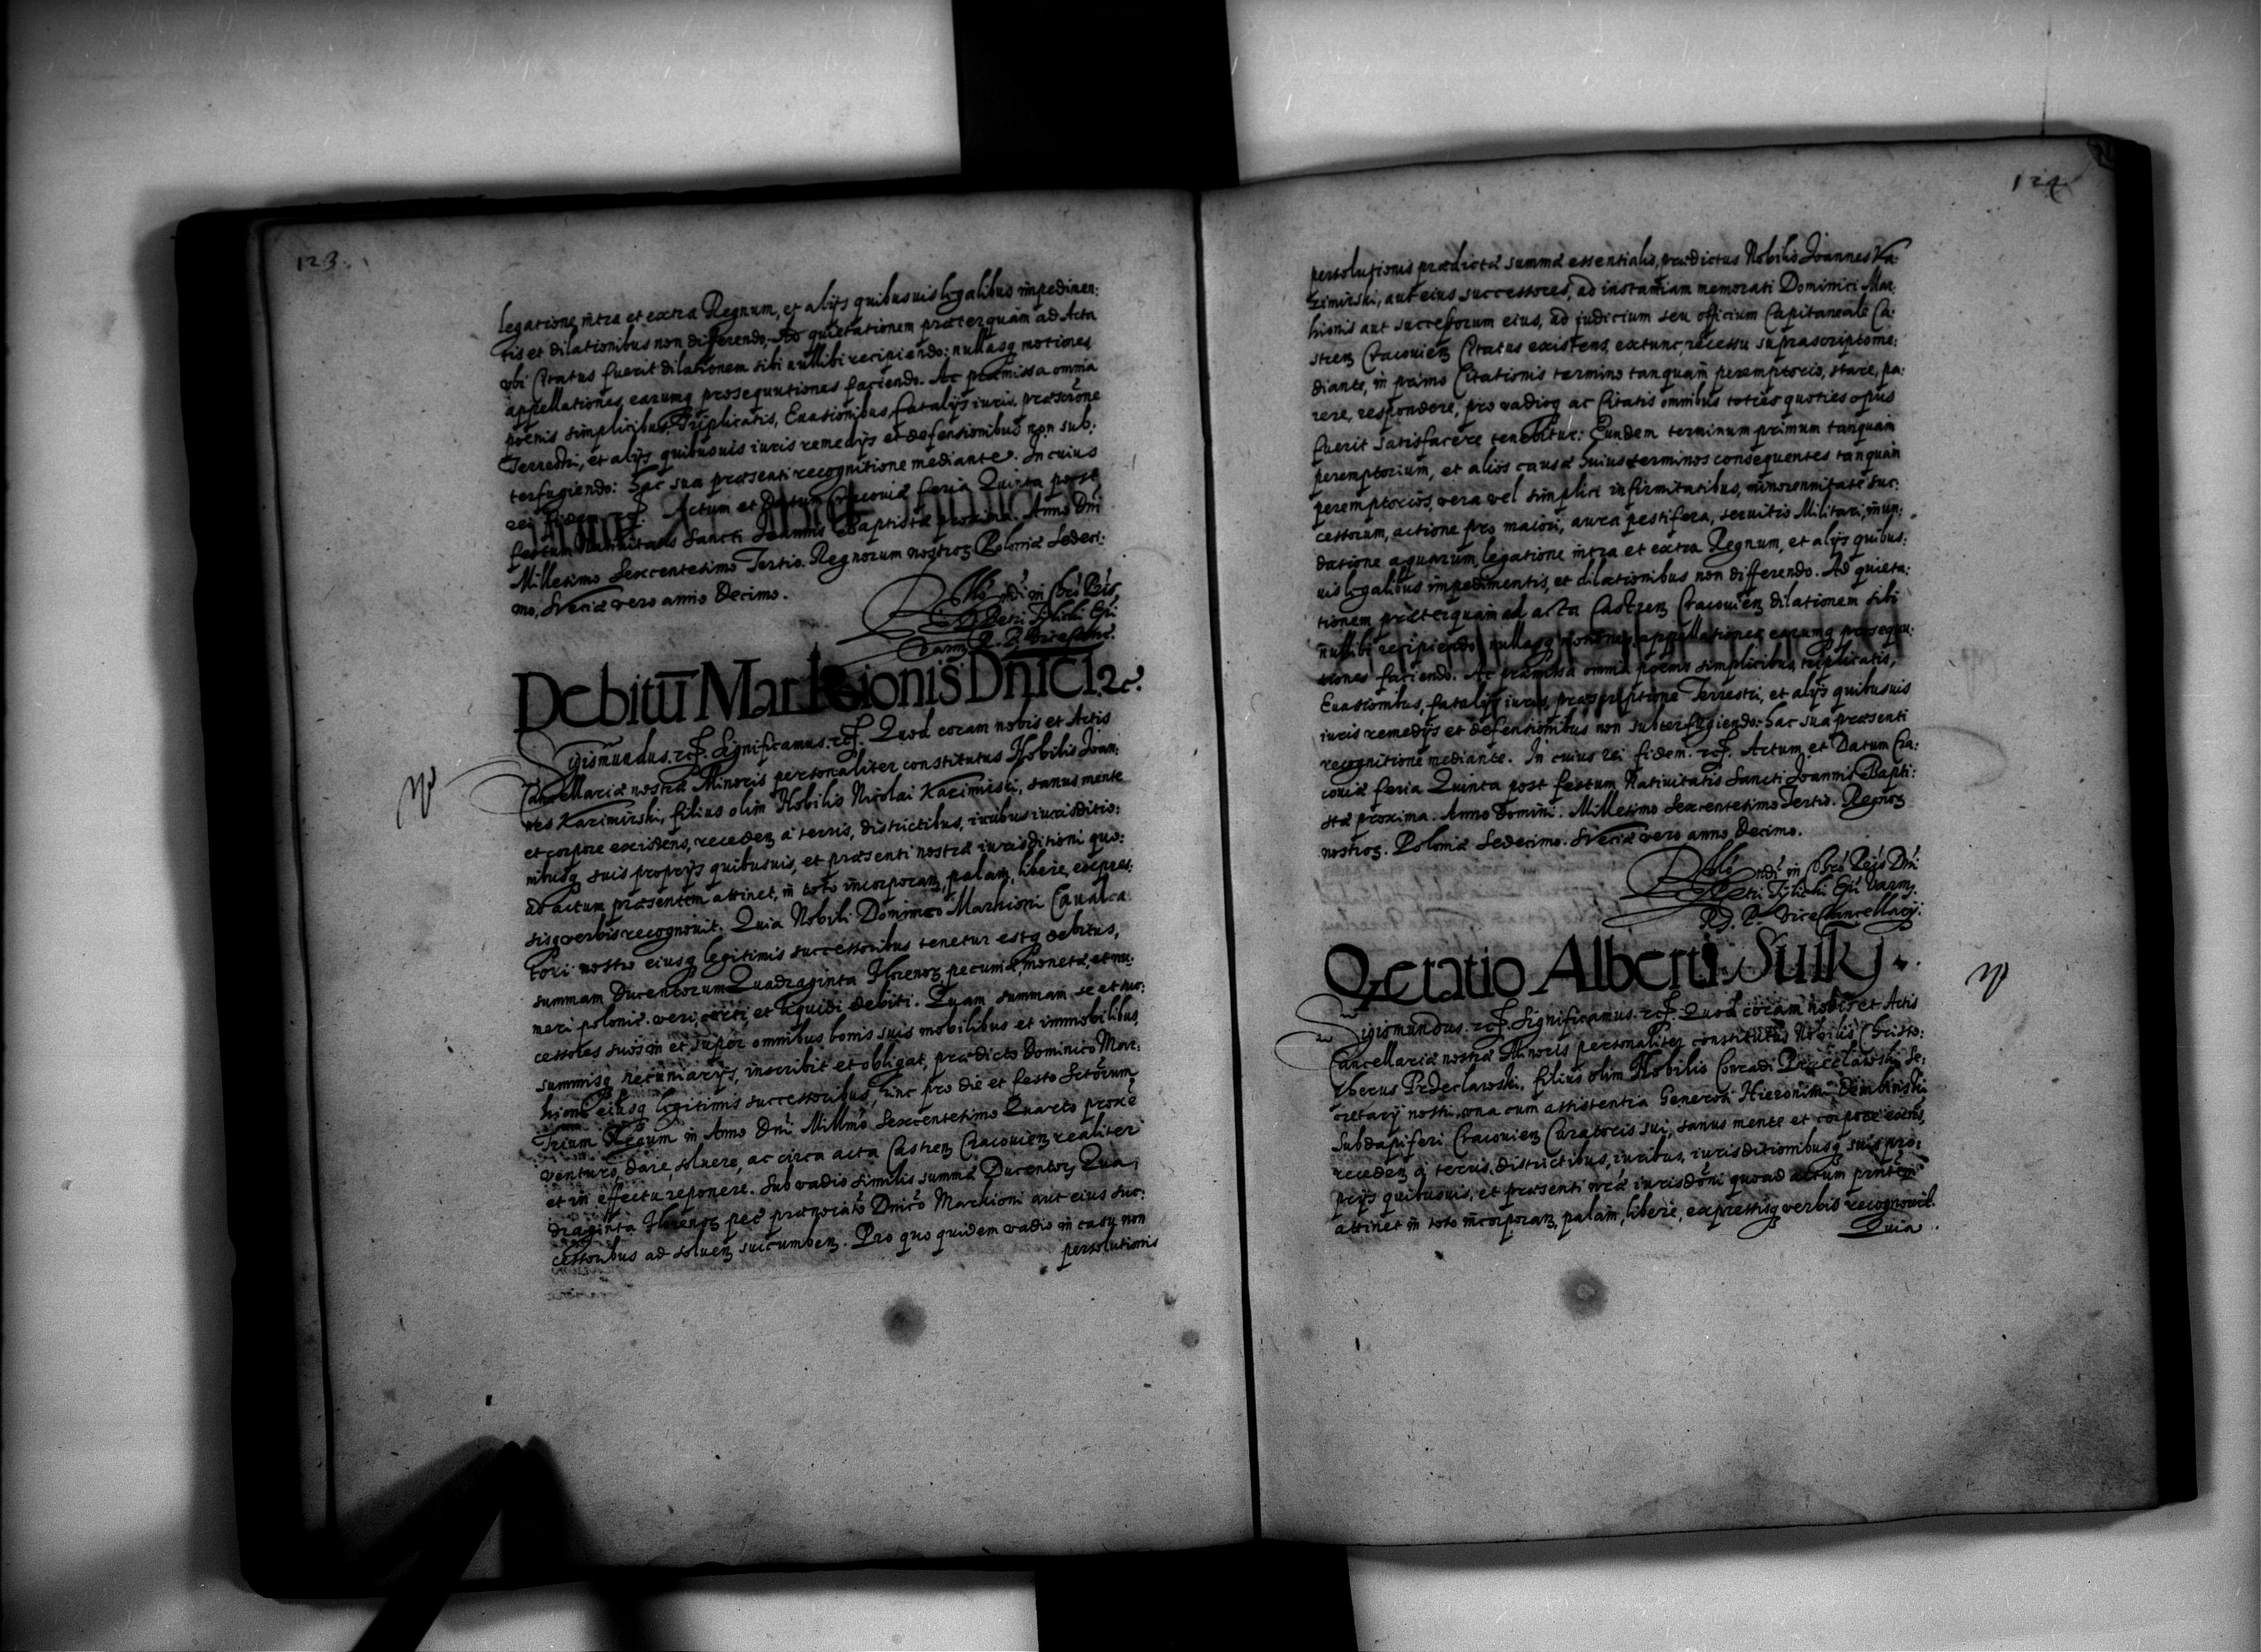 123.
legatione, intra et extra Regnum, et alijs quibusuis legalibus impedimen:
tis et dilationibus non differendo, Ad quietationem præterquam ad Acta
vbi Citatus fuerit dilationem sibi nullibi recipiendo: nullasq motiones
appellationes, earumq prosequutiones faciendo. Ac præmissa omnia
poenis simplicibus, Triplicatis, Euasionibus, fatalijs iuris, præscrōne
Terrestri, et alijs quibusuis iuris remedijs et defensionibus non sub:
terfugiendo: hac sua præsenti recognitione mediante. In cuius
rei fidem. rcf. Actum et Datum Cracouiæ feria Quinta post
festum Natiuitatis Sancti Joannis Baptistæ proxima. Anno Dni
Millesimo Sexcentesimo Tertio. Regnorum nostroꝝ Poloniæ Sedeci:
mo, Sveciæ vero anno Decimo.
Petri Tylicki Epi
Varm. R. P. Vicecanc.
Debitū Markionis Dnici ꝛc.
Sigismundus. rcf. Significamus. rcf. Quod coram nobis et Actis
Cancellariæ nostræ Minoris personaliter constitutus Nobilis Joan:
nes Kazimirski, filius olim Nobilis Nicolai Kazimirski, sanus mente
et corpore existens, recedeꝝ á terris, districtibus, iuribus iurisditio:
nibusq suis proprijs quibusuis, et præsenti nostræ iurisditioni quo:
ad actum præsentem attinet, in toto incorporaꝝ, palam, libere, expres:
sisq verbis recognouit. Quia Nobili Dominico Markioni Caualca
tori nostro eiusq legitimis successoribus tenetur estq debitus,
summam Ducentorum Quadraginta florenoꝝ pecuniæ, monetæ, et nu:
meri polonic. veri, certi, et liquidi debiti. Quam summam se et suc:
cessores suos in et super omnibus bonis suis mobilibus et immobilibus,
summisq pecuniarijs, inscribit et obligat, prædicto Dominico Mar:
hioni eiusq legitimis successoribus, hinc pro die et festo Sctōrum
Trium Regum in Anno Dni Millmo Sexcentesimo Quarto proxe
venturo, dare, soluere, ac circa acta Castreꝝ Cracouieꝝ realiter
et in effectu reponere. Sub vadio similis summæ Ducentoꝝ Qua,
draginta florenoꝝ pec prænoiato Dnico Marchioni aut eius suc:
cessoribus ad solueꝝ succumbeꝝ. Pro quo quidem vadio in casu non
persolutionis
124
persolutionis prædictæ summæ essentialis, prædictus Nobilis Joannes Ka:
zimirski, aut eius successores, ad instantiam memorati Dominici Mar,
hionis aut successorum eius, ad judicium seu officium Capitaneale Ca:
streꝝ Cracouieꝝ Citatus existens, extunc, recessu suprascripto me:
diante, in primo Citationis termino tanquam peremptorio, stare, pa:
rere, respondere, pro vadioq ac Citatis omnibus toties quoties opus
fuerit satisfacere tenebitur: Eundem terminum primum tanquam
peremptorium, et alios causæ huius terminos consequentes tanquam
peremptorios, vera vel simplici infirmitatibus, minorennitate suc:
cessorum, actione pro maiori, aura pestifera, seruitio Militari, inun:
datione aquarum, legatione intra et extra Regnum, et alijs quibus:
uis legalibus impedimentis, et dilationibus non differendo. Ad quieta:
tionem præterquam ad acta Castreꝝ Cracouieꝝ dilationem sibi
nullibi recipiendo, nullasq motiones, appellationes, earumq prosequu:
tiones faciendo. Ac præmissa omnia poenis simplicibus, triplicatis,
Euasionibus, fatalijs iuris, præscriptione Terrestri, et alijs quibusuis
iuris remedijs et defensionibus non subterfugiendo: hac sua præsenti
recognitione mediante. In cuius rei fidem. rcf. Actum et Datum Cra:
couiæ feria Quinta post festum Natiuitatis Sancti Joannis Bapti:
stæ proxima. Anno Domini. Millesimo Sexcentesimo Tertio. Regnoꝝ
nostroꝝ. Poloniæ Sedecimo. Sveciæ vero anno Decimo.
Petri Tylicki Epi Varm.
R. P. ViceCancellarij.
Qꝛetatio Alberti Sulky.
Sigismundus. rcf. Significamus. rcf. Quod coram nobis et Actis
Cancellariæ nostræ Minoris personaliter constitutus Nobilis Christo:
phorus Przeclawski, filius olim Nobilis Conradi Przeclawski Se:
cretarij nostri, vna cum assistentia Generosi Hieronimi Dembinski
Subdapiferi Cracouieꝝ Curatoris sui, sanus mente et corpore exens,
recedeꝝ á terris, districtibus, iuribus, iurisditionibusq suis pro:
prijs quibusuis, et præsenti nræ iurisdōni quoad actum prntem
attinet in toto incorporaꝝ, palam, libere, expressisq verbis recognouit.
Quia